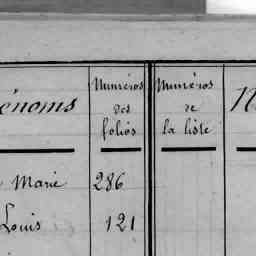 énoms Numéros des folios Numéros de la liste N
Marie 286
Louis 121